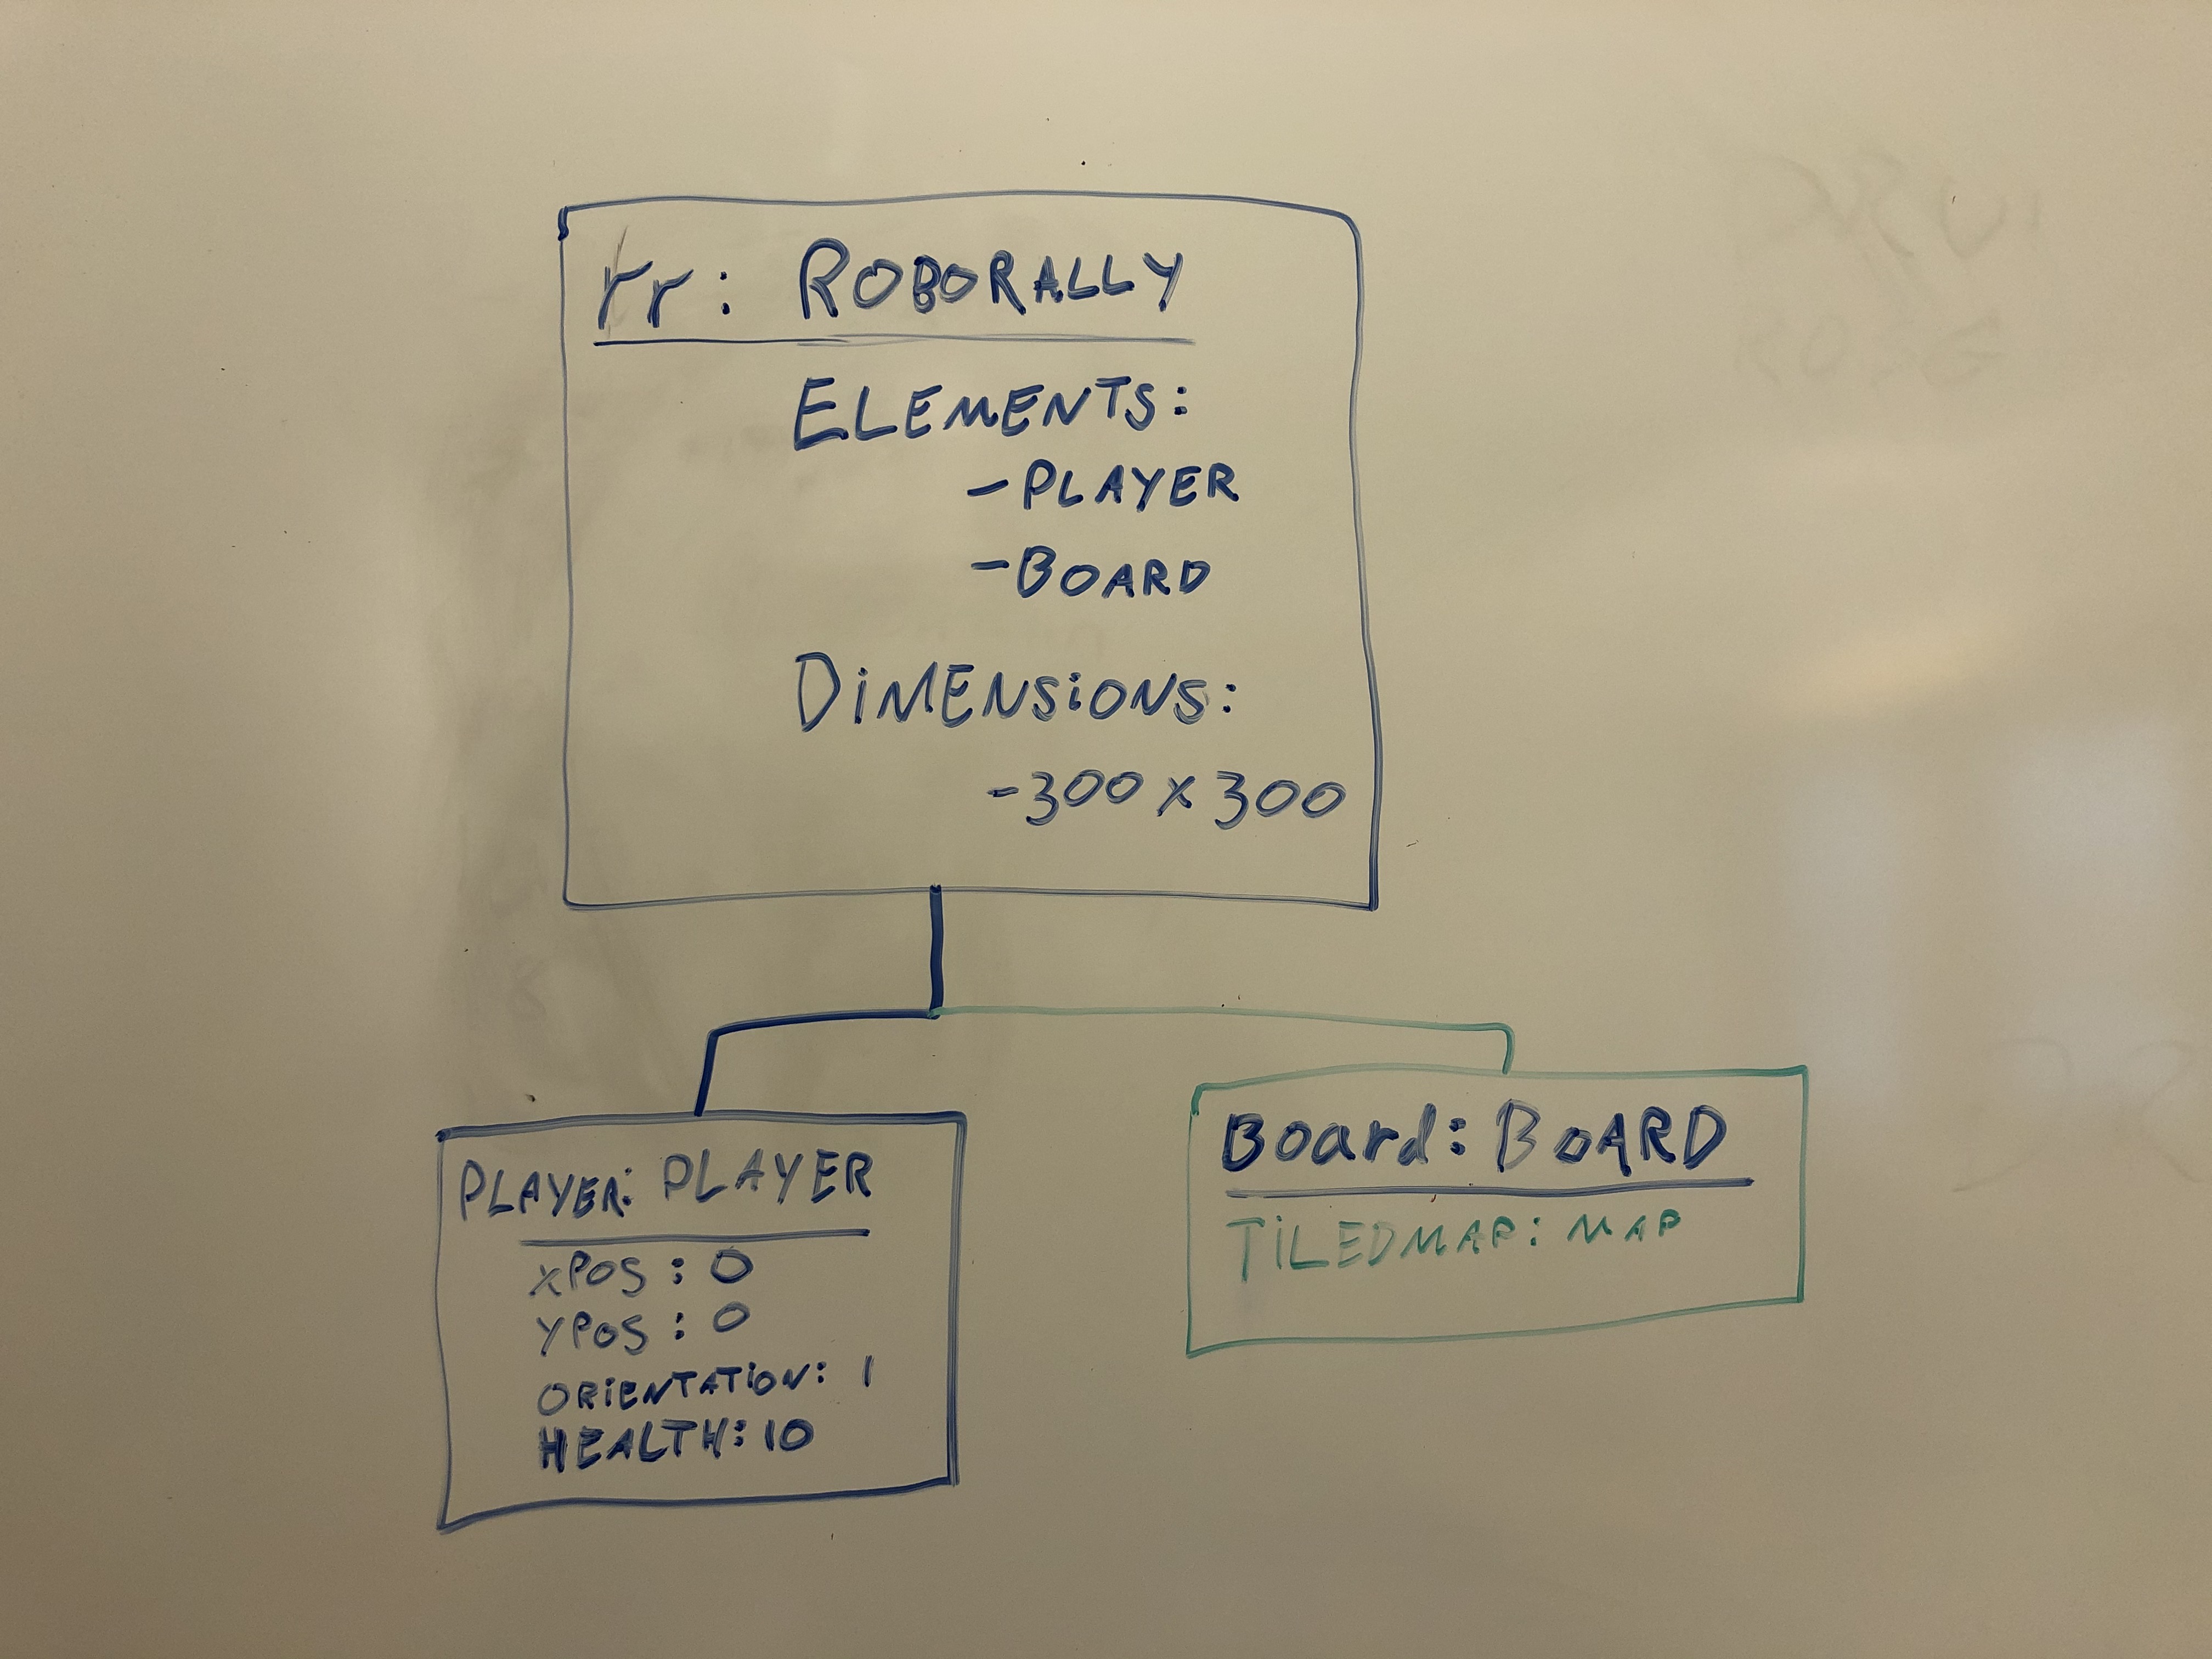 rr: ROBORALLY
ELEMENTS:
-PLAYER
-BOARD
DiMENSiONS:
-300 x 300
PLAYER: PLAYER
XPOS: 0
YPOS: 0
ORiENTATiON: 1
HEALTH: 10
Board: BOARD
TiLEDMAP: MAP